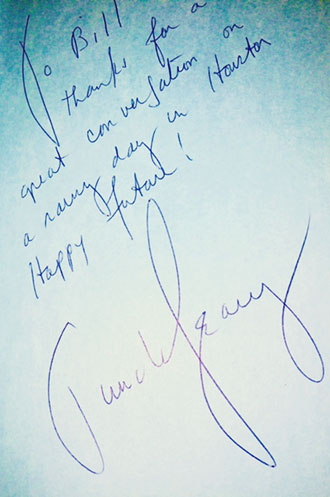 To Bill
thanks for a
great conversation on
a rainy day in Houston
Happy future!